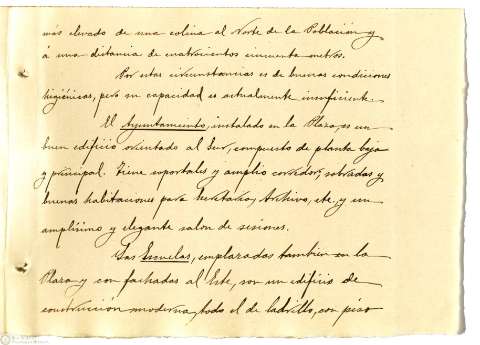 más elevado de una colina al Norte de la Población y
á una distancia de cuatrocientos cincuenta metros.
Por estas circunstancias es de buenas condiciones
higiénicas, pero su capacidad es actualmente insuficiente.
El Ayuntamiento, instalado en la Plaza, es un
buen edificio orientado al Sur, compuesto de planta baja
y principal. Tiene soportales y amplio corredor, sobradas y
buenas habitaciones para Secretaría, Archivo, etc. y un
amplísimo y elegante salon de sesiones.
Las Escuelas, emplazadas tambien en la
Plaza y con fachadas al Este, son un edificio de
construccion moderna, todo él de ladrillo, con piso